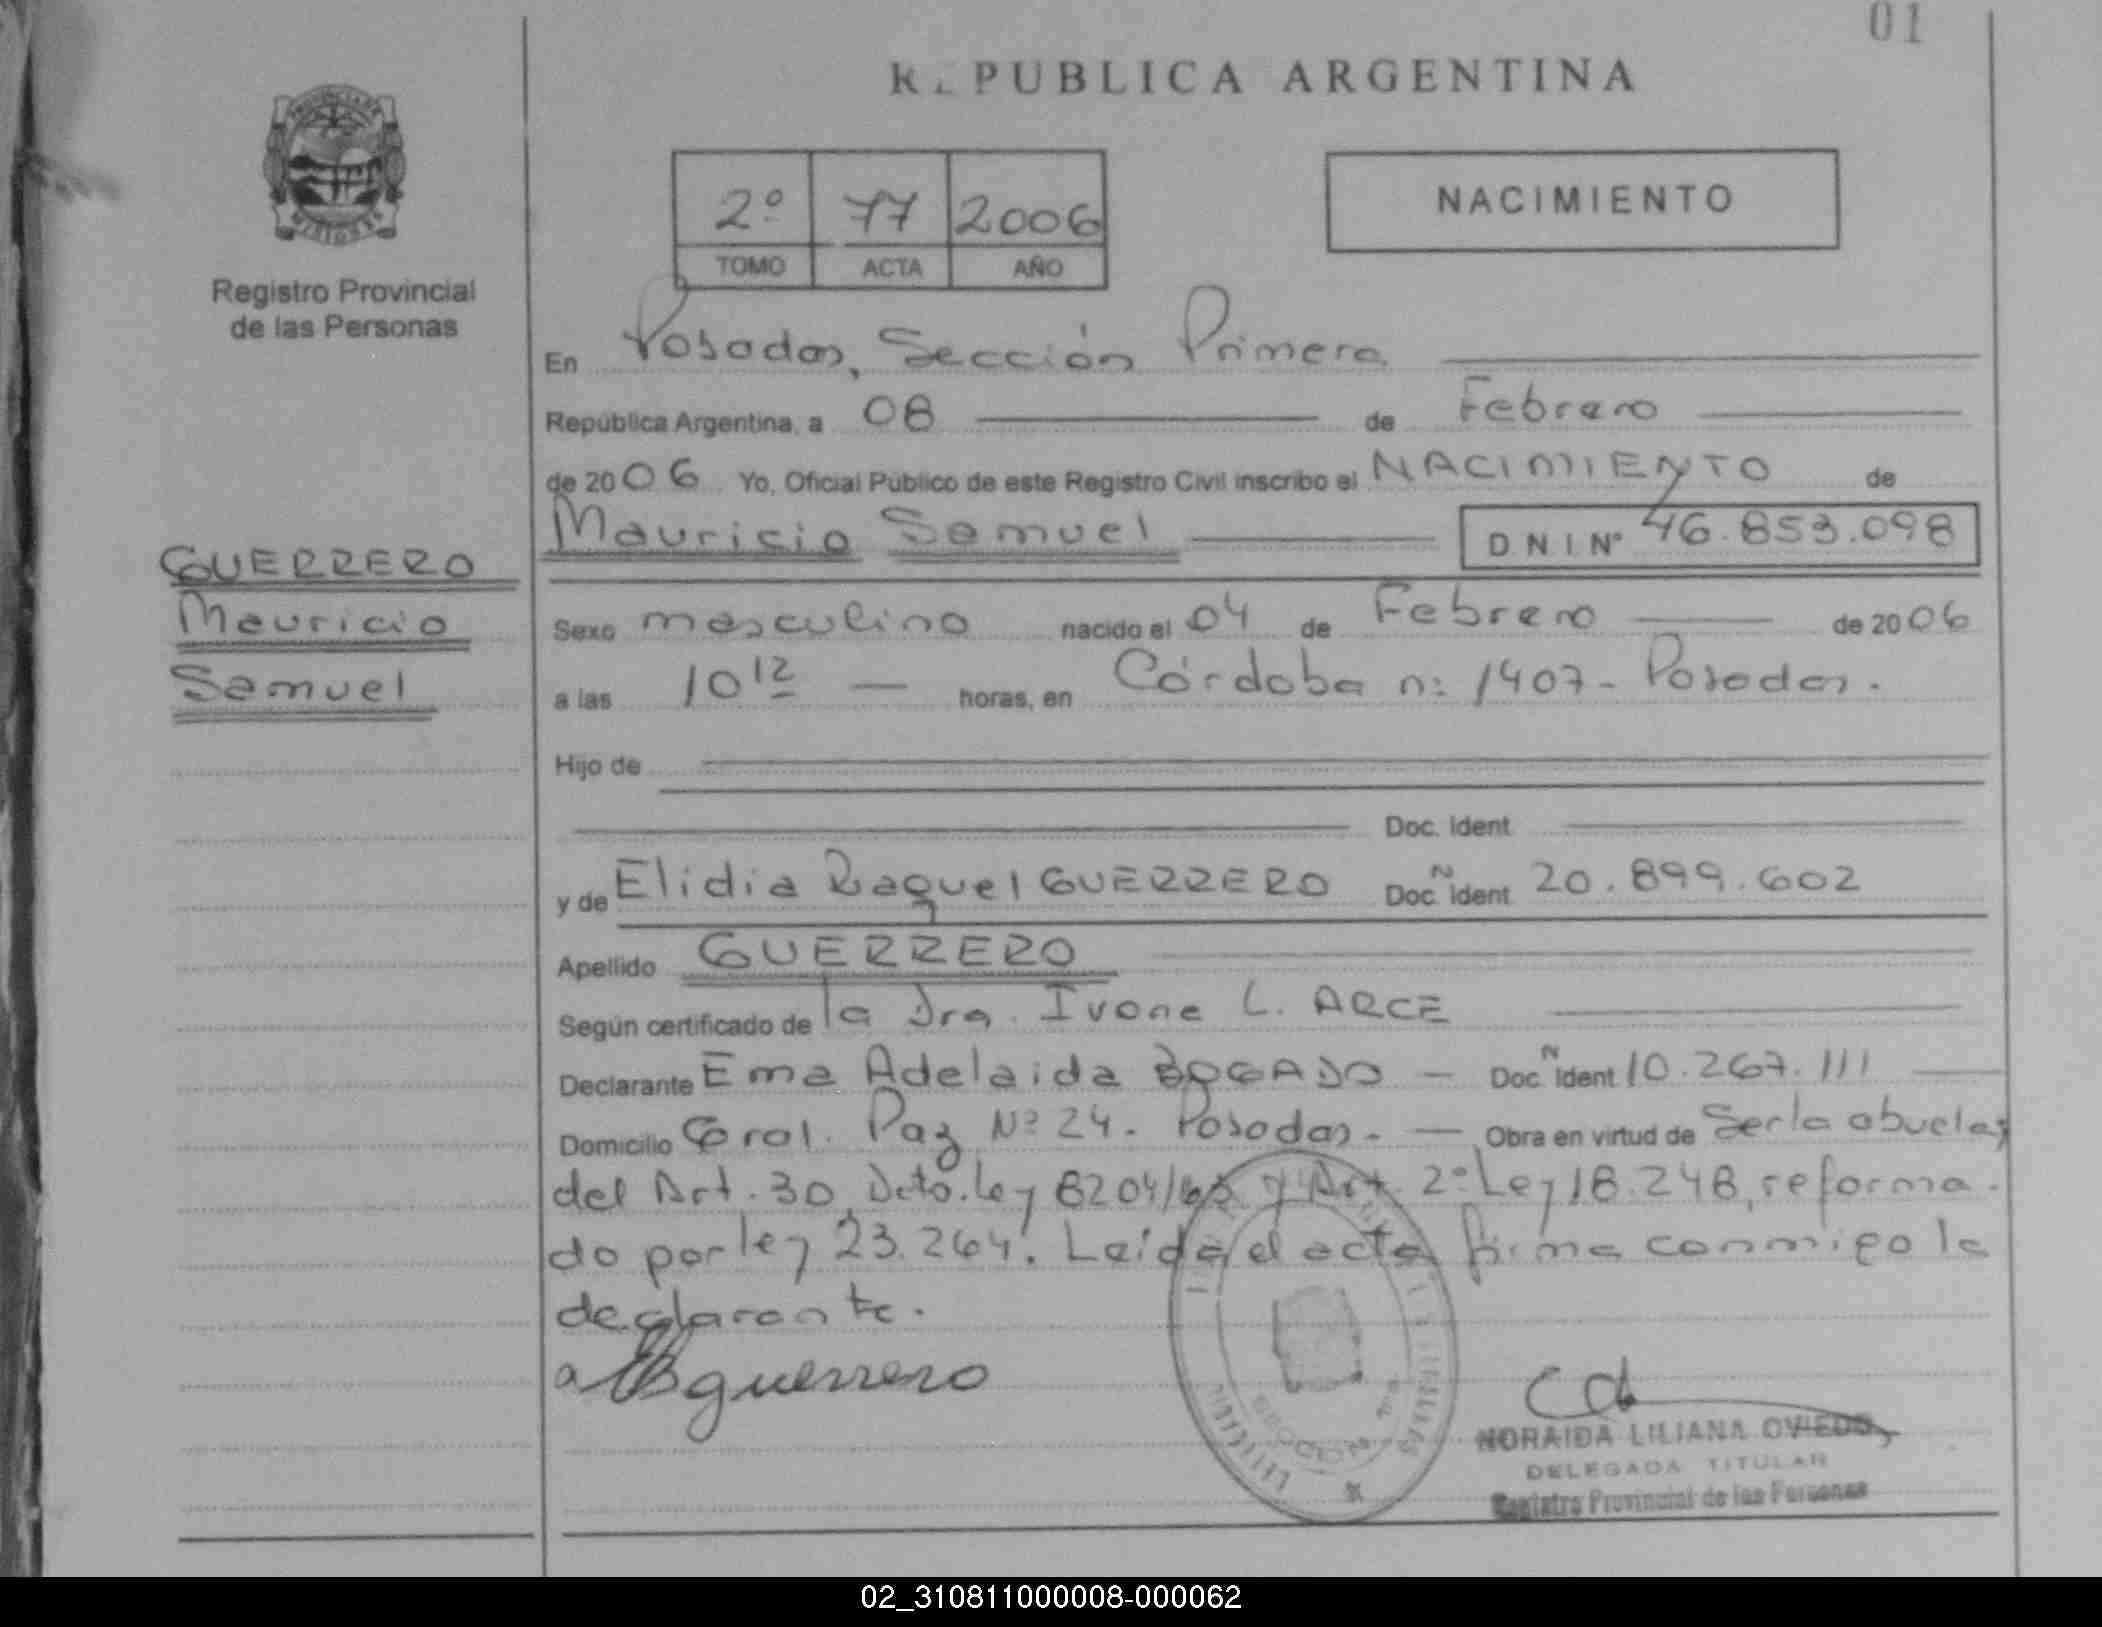 01
REPUBLICA ARGENTINA
PROVINCIA DE
MISIONES
Registro Provincial
de las Personas
2º 77 2006
TOMO ACTA AÑO
NACIMIENTO
En Posadas, Sección Primera.
República Argentina, a 08 de Febrero
de 2006 Yo, Oficial Público de este Registro Civil inscribo el NACIMIENTO de
Mauricio Samuel D.N.I. Nº 46.853.098
GUERRERO
Mauricio
Samuel
Sexo masculino nacido el 04 de Febrero de 2006
a las 10 12 horas, en Córdoba nº 1407 - Posadas.
Hijo de
Doc. Ident.
y de Elidia Raquel GUERRERO Doc. N Ident. 20.899.602
Apellido GUERRERO
Según certificado de la Dra. Ivone L. ARCE
Declarante Ema Adelaida BOGADO - Doc. N Ident 10.267.111
Domicilio Gral. Paz Nº 24 - Posadas. - Obra en virtud de Ser la abuela,
del Art. 30 Dcto. Ley 8204/63 y Art. 2º Ley 18.248, reforma-
do por ley 23.264. Leída el acta firma conmigo la
declarante.
guerrero
SECCION
NORAIDA LILIANA OVIEDO
DELEGADA TITULAR
Registro Provincial de las Personas
02_310811000008-000062